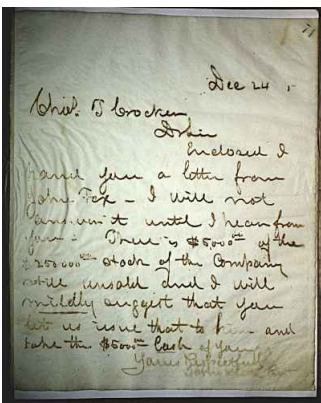 71
Dec 24
Chas. T Crocker
D Sir
Enclosed I
hand you a letter from
John Fox - I will not
answer it until I hear from
you - There is $5000 00 of the
$250000 00 stock of the Company
still unsold and I will
mildly suggest that you
let us issue that to him and
take the $5000 00 Cash of your
Yours Respectfully